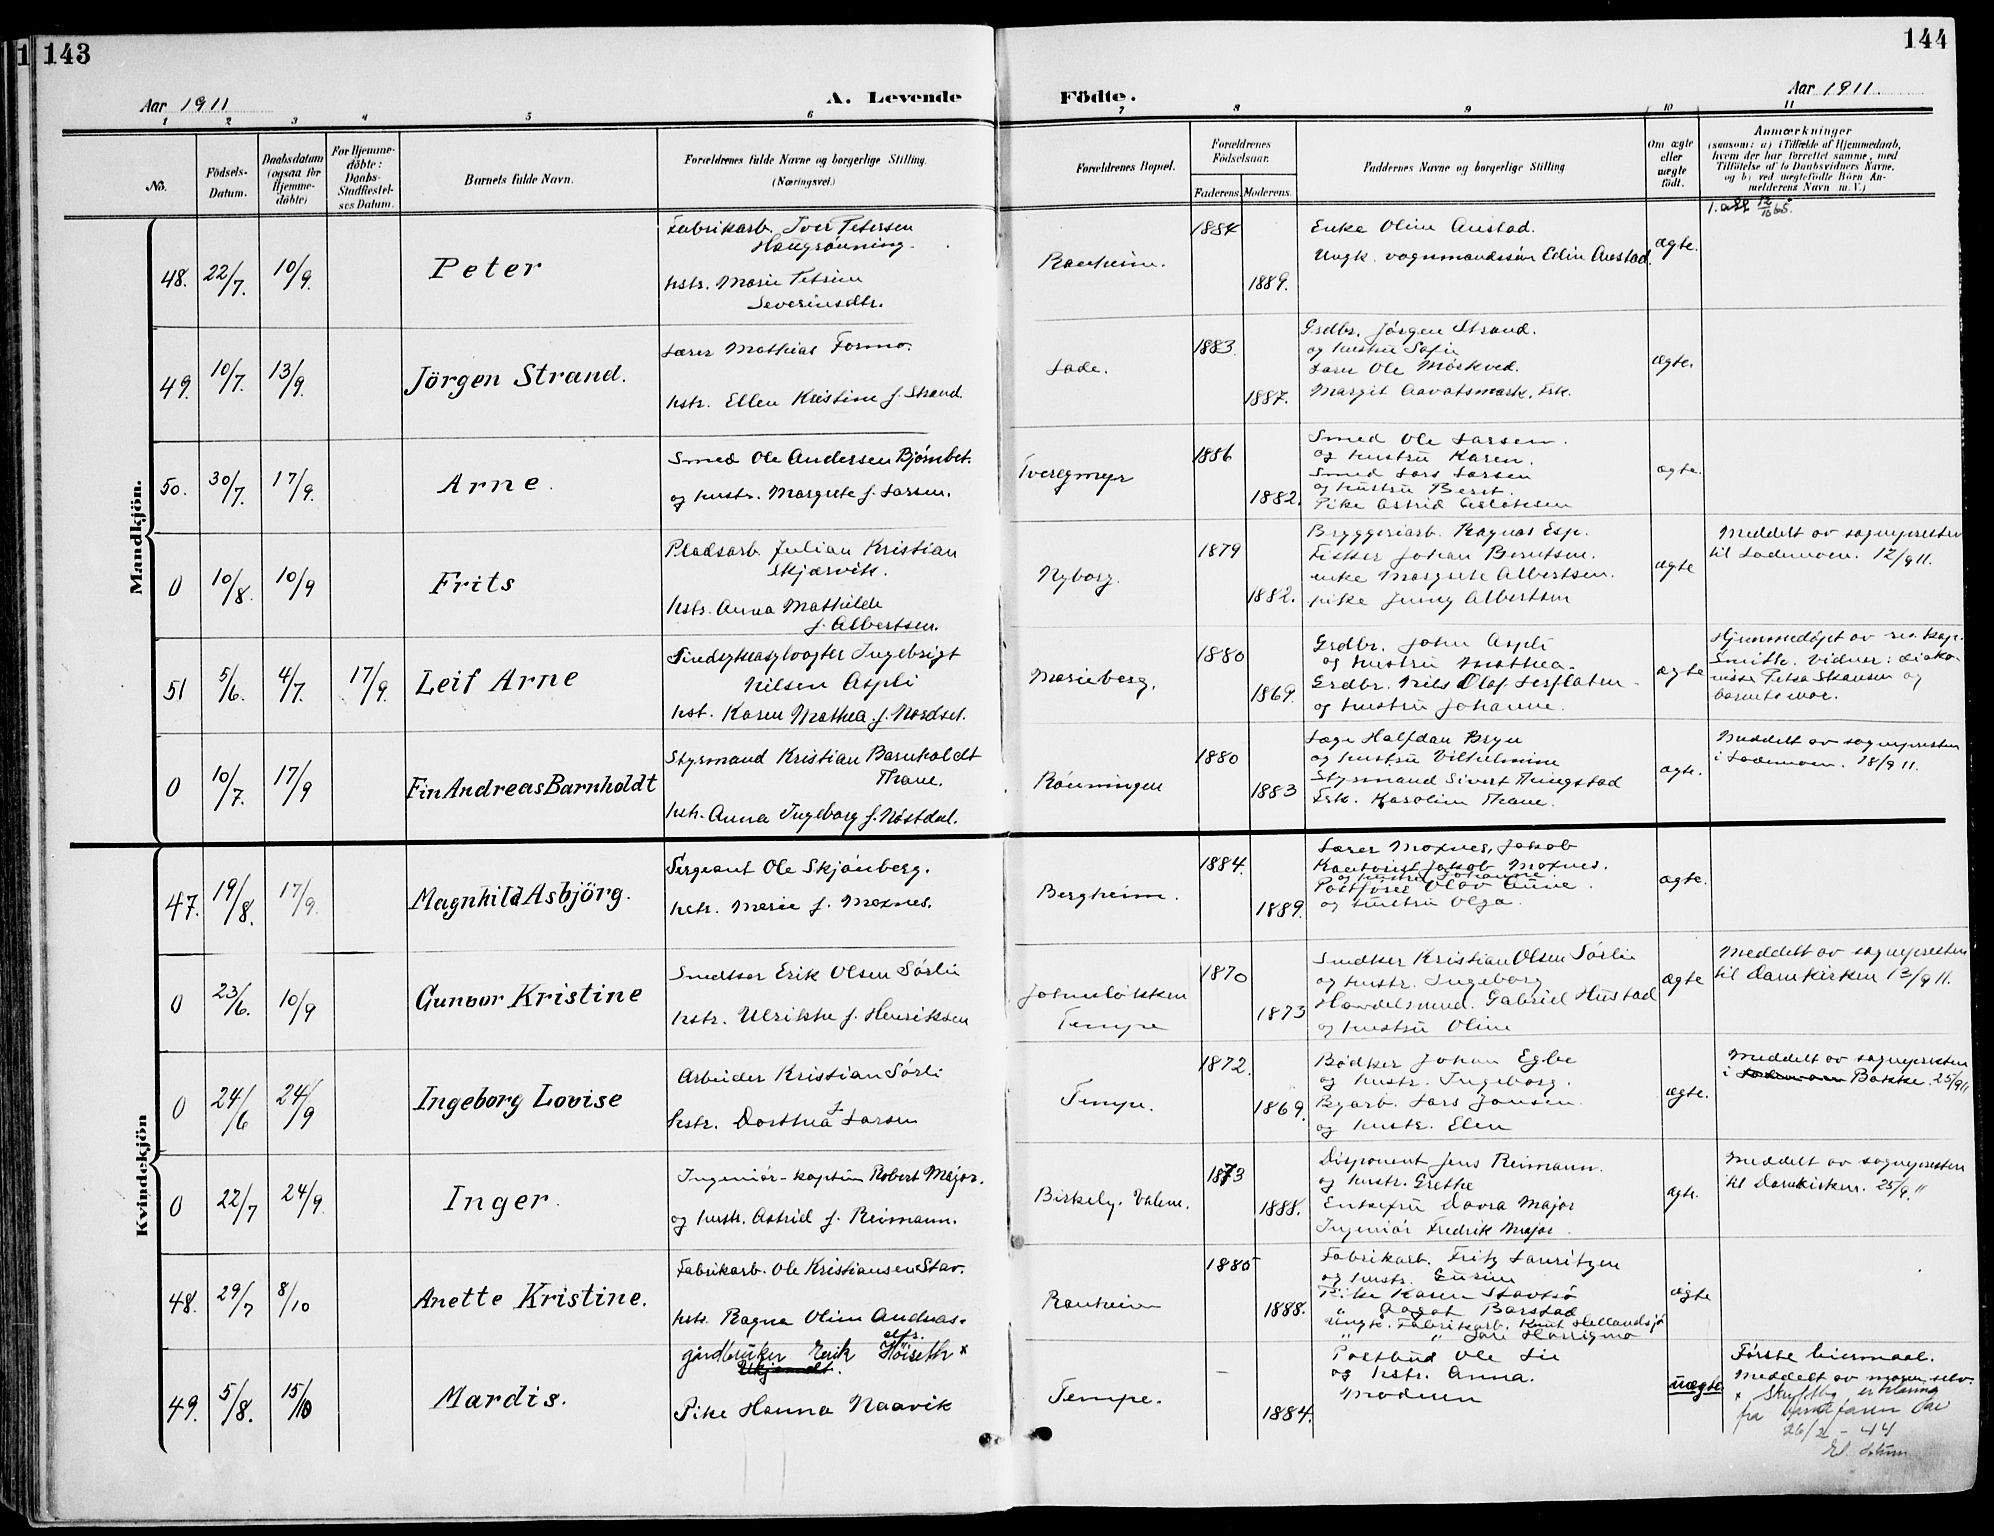 143
144
Aar 1911
A. Levende
Födte.
Aar 1911.
1 2 3 4 5 6 7 8 9 10 11
No.
Födsels-Datum.
Daabsdatum (ogsaa for Hjemme-döbte)
For Hjemme-döbte: Daabs-Stadfæstel-ses Datum.
Barnets fulde Navn.
Forældrenes fulde Navne og borgerlige Stilling.
(Næringsvei.)
Forældrenes Bopæl.
Forældrenes Födselsaar.
Faderens. Moderens.
Faddernes Navne og borgerlige Stilling
Om ægte eller uægte födt.
Anmærkninger
(saasom: a) i Tilfælde af Hjemmedaab,
hvem der har forrettet samme, med
Tilföielse af to Daabsvidners Navne,
og b) ved uægtefödte Börn An-
melderens Navn m. V.)
Mandkjön.
48. 22/7. 10/9. Peter
Fabrikarb. Iver Petersen
Haugrönning.
hstr. Marie Petrine
Severinsdtr.
Ranheim. 1884 1889.
Enke Oline Anstad.
Ungk. vognmandssön Edin Anstad.
ægte.
49. 10/7. 13/9. Jörgen Strand.
Lærer Mathias Formo.
hstr. Ellen Kristine f. Strand
Lade. 1883 1887.
Grdbr. Jörgen Strand.
og hustru Sofie
Lærer Ole Möskved.
Margit Aavatsmark, Frk.
ægte.
50. 30/7. 17/9. Arne.
Smed Ole Andersen Bjömbet.
og hustr. Margrete f. Larsen.
Tveregmyr 1886 1882.
Smed Ole Larsen.
og hustru Karen.
Smed Lars Larsen
og hustru Beret.
Pike Astrid
ægte.
0 10/8. 10/9 Frits
Pladsarb. Julian Kristian
Skjærvik.
hstr. Anna Mathilde
f. Albertsen.
Nyborg. 1879 1882.
Bryggeriarb. Ragnar Esp.
Fisker Johan Berntsen.
enke Margrete Albertsen.
pike Jenny Albertsen
ægte
Meddelt av sognepresten
til Lademoen. 12/9 11.
51 5/6. 4/7. 17/9. Leif Arne
Ingebrigt
Nilsen Aspli
hst. Karen Mathea f. Nordset.
Marieberg. 1880 1869.
Grdbr. John Aspli
og hustru Mathea.
Grdbr. Nils Olaf
og hustru Johanne.
ægte
Hjemmedöpt av res. kap.
Smitt. Vidner: diako-
nisse Petra Skansen og
barnets mor.
0 10/7. 17/9 Fin Andreas Barnholdt
Styrmand Kristian Barnholdt
Thane.
hstr. Anna Ingeborg f. Nöstdal.
Rönningen 1880 1883
Læge Halfdan Bryn
og hustru Vilhelmine
Styrmand Sivert Ringstad
Frk. Karoline Thane.
ægte.
Meddelt av sognepresten
i Lademoen. 18/9 11.
Kvindekjön
47. 19/8. 17/9. Magnhild Asbjörg.
Sergeant Ole Skjönberg.
hstr. Marie f. Moxnes.
Bergheim. 1884. 1889.
Lærer Moxnes, Jakob
Jakob Moxnes.
og hustru Johanne.
Olav Aune.
og hustru Olga.
ægte.
0 23/6. 10/9 Gunvor Kristine
Erik Olsen Sörli
hstr. Ulrikke f. Henriksen
Tempe 1870 1873
Kristian Olsen Sörlie
og hustr. Ingeborg
Gabriel Hustad
og hustru Oline
ægte
Meddelt av sognepresten
til Domkirken 13/9 11.
0 24/6 24/9 Ingeborg Lovise
Arbeider Kristian Sörli
hstr. Dorthea f Larsen
Tempe. 1872. 1869.
Bödker Johan Egbe
og hustr. Ingeborg.
Byarb. Lars Jonsen.
og hustr. Elen
ægte.
Meddelt av sognepresten
i Bakke. 25/9 11
0 22/7 24/9. Inger.
Ingeniör-kaptein Robert Major.
og hustr. Astrid f. Reimann.
Birkely. 1873 1888.
Disponent Jens Reimann.
og hustr. Grethe
Enkefru Davra Major
Ingeniör Fredrik Major.
ægte.
Meddelt av sognepresten
til Domkirken. 25/9 11
48. 29/7 8/10 Anette Kristine.
Fabrikarb. Ole Kristiansen Stav.
hstr. Ragna Oline Andreas-
dtr.
Ranheim 1885 1888.
Fabrikarb. Fritz Lauritzen
og hustr. Gurine
Pike Karen
" Aagot Barstad
Ungk. Fabrikarb. Knut Hellandsjö
" "
ægte
49. 5/8. 15/10 Mardis.
gårdbruker Erik Höiseth x
Ukjendt.
Pike Hanna Naavik
Tempe. – 1884.
Postbud Ole Lie
og hstr. Anna.
Moderen
uægte
Förste leiermaal.
Meddelt av moren selv.
x Skriftlig erklæring
fra barnefaren
26/2 - 44